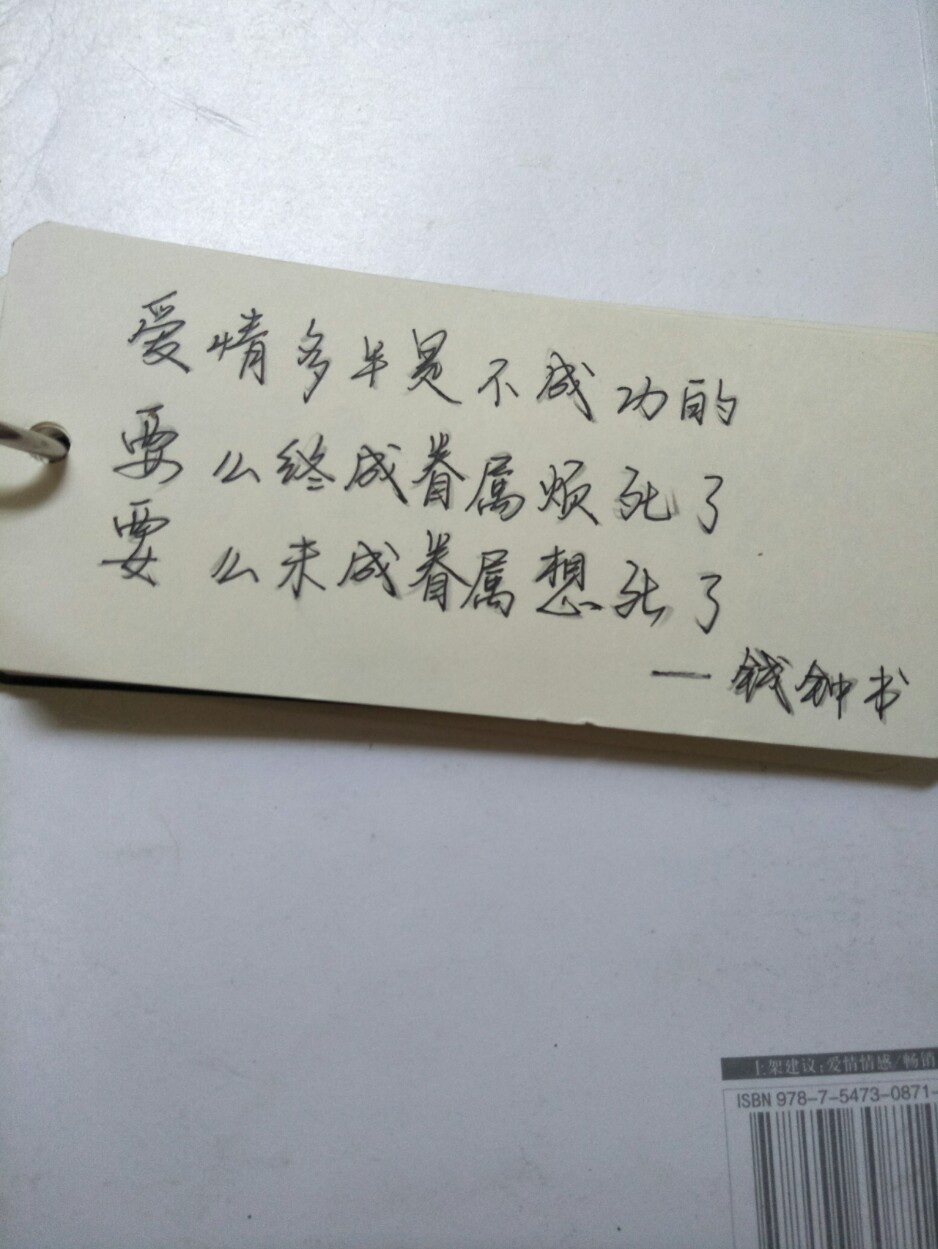 爱情多半是不成功的
要么终成眷属烦死了
要么未成眷属想死了
—钱钟书
上架建议:爱情情感/畅销
ISBN 978-7-5473-0871-